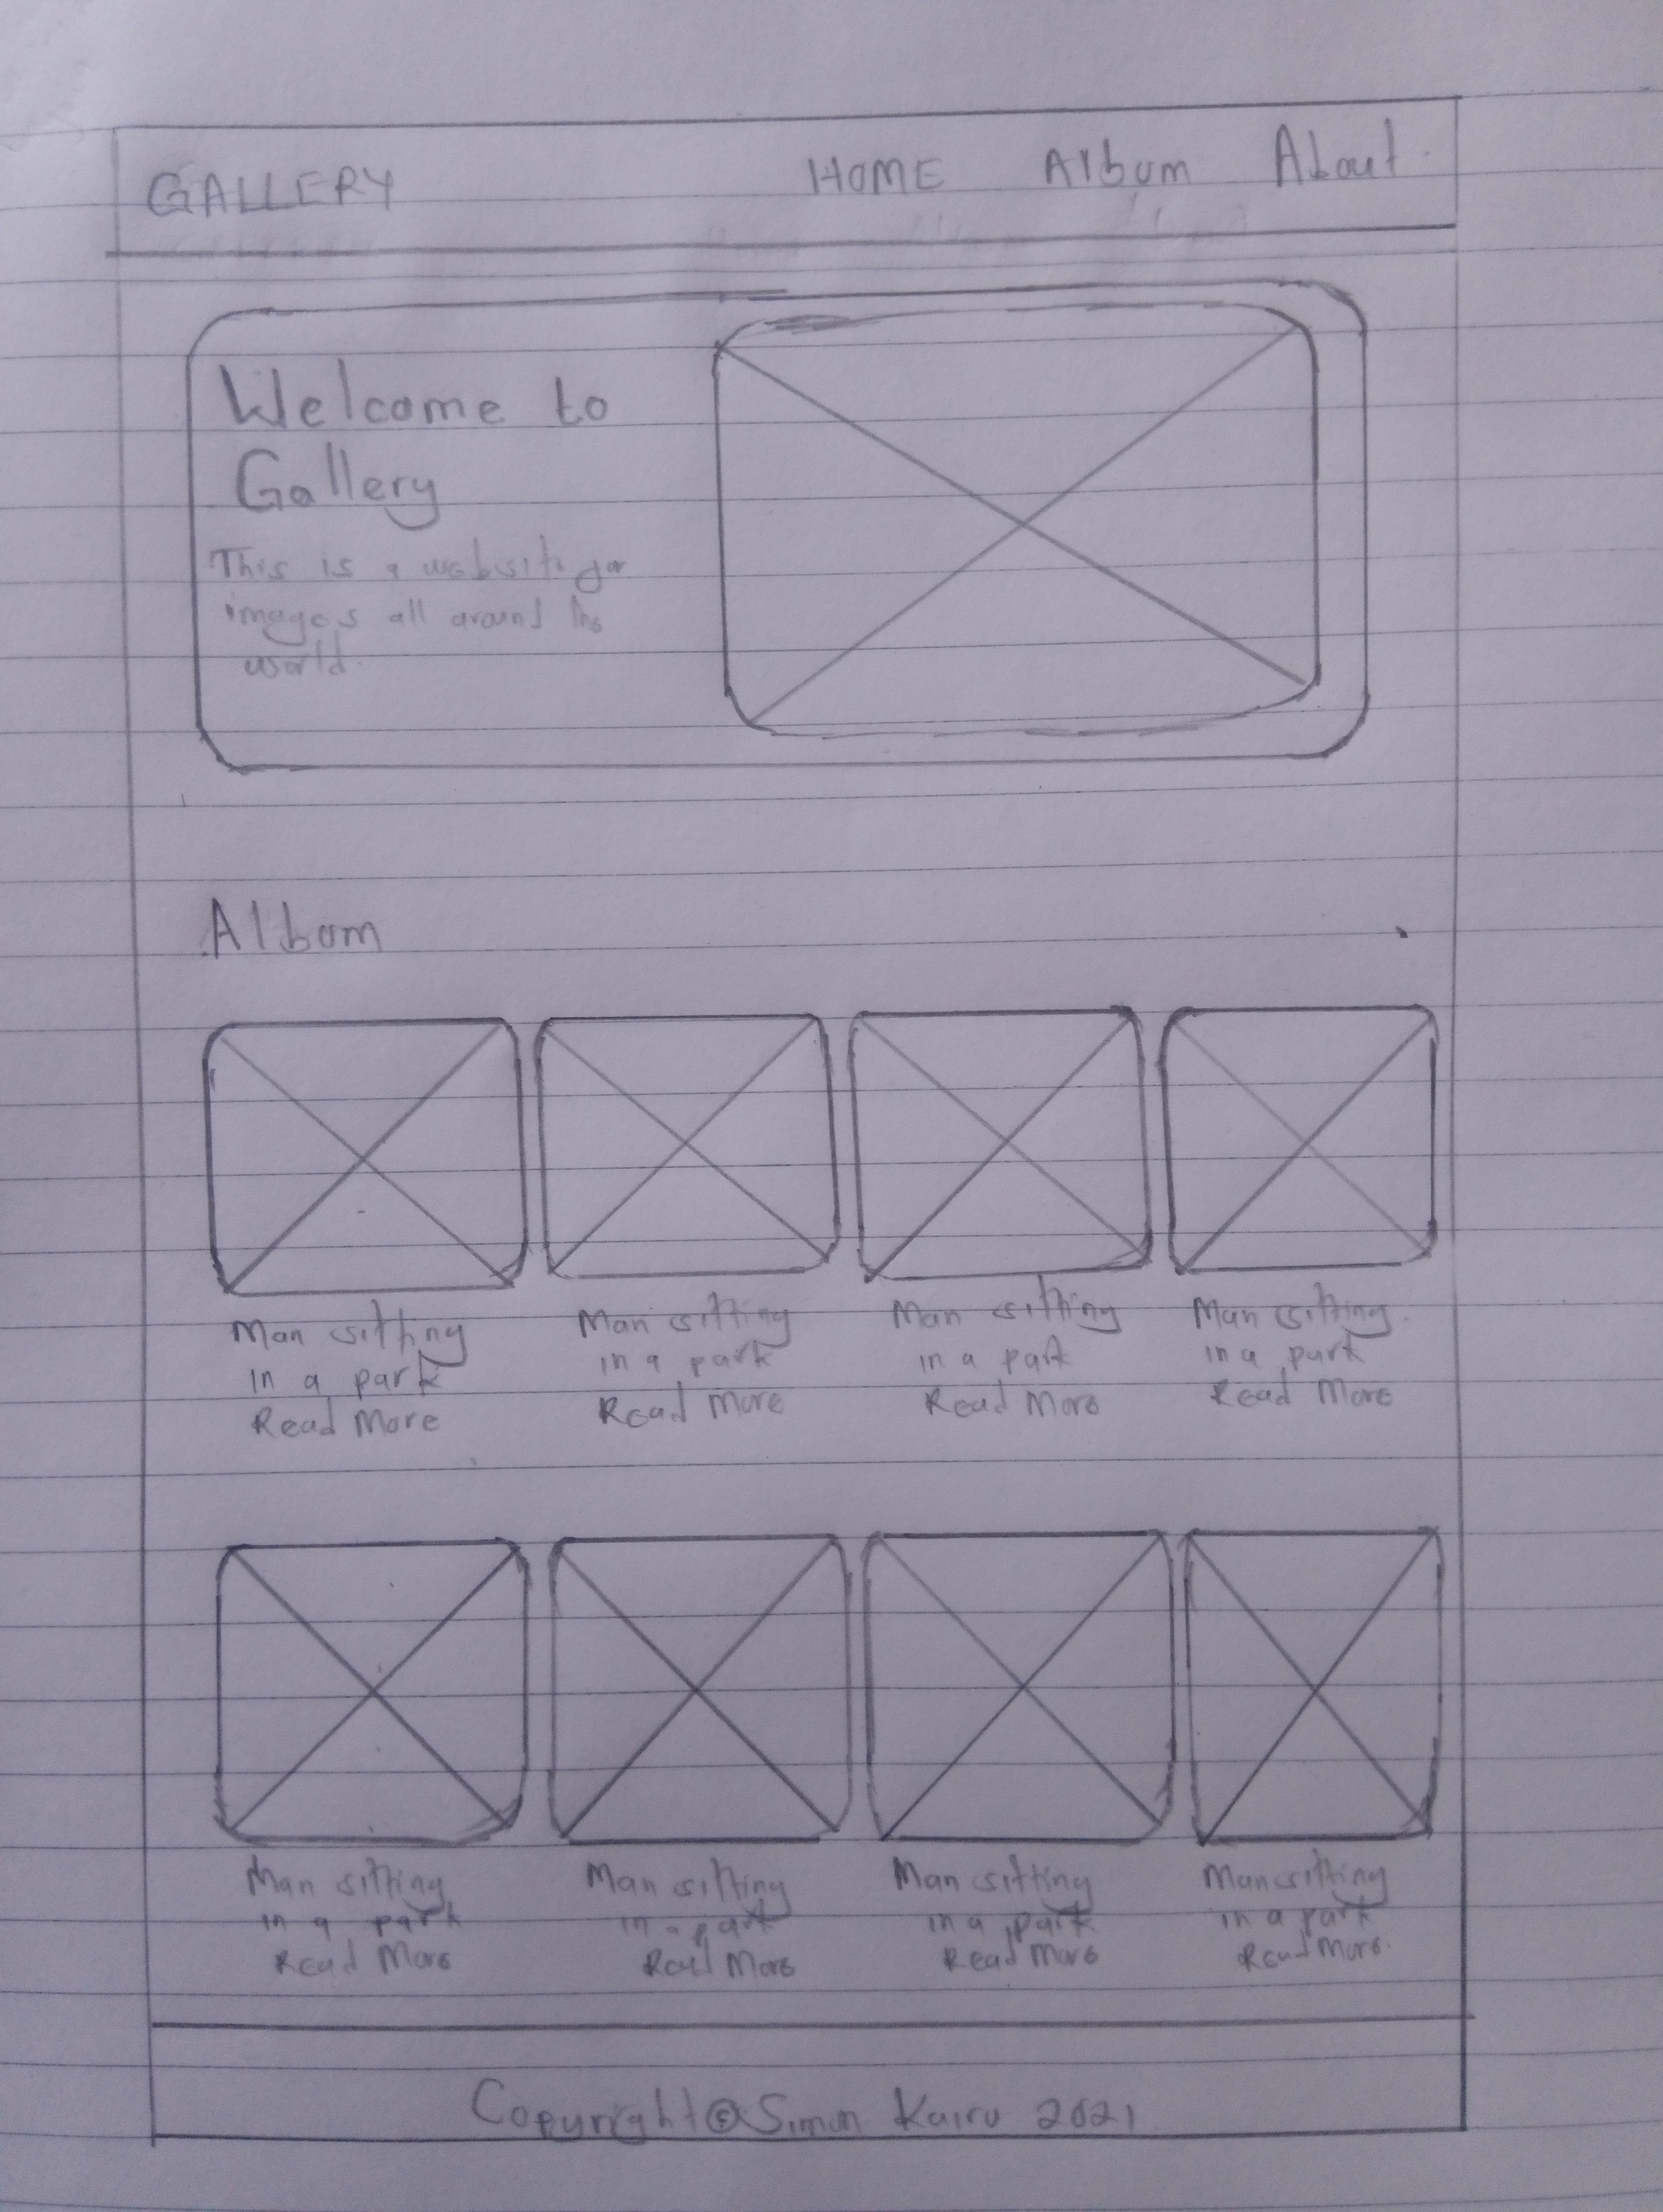 GALLERY HOME Album About
Welcome to
Gallery
This is a website for
images all around the
world.
Album
Man sitting
in a park
Read More
Man sitting
in a park
Read More
Man sitting
in a park
Read More
Man sitting
in a park
Read More
Man sitting
in a park
Read More
Man sitting
in a park
Read More
Man sitting
in a park
Read More
Man sitting
in a park
Read More
Copyright © Simon Kairu 2021